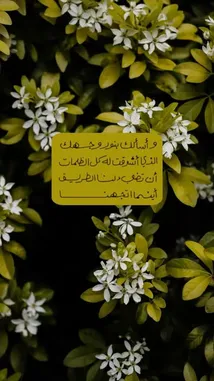 وأسألك بنور وجهك
الذي أشرقت له كل الظلمات
أن تضيء لنا الطريق
أينما اتجهنا